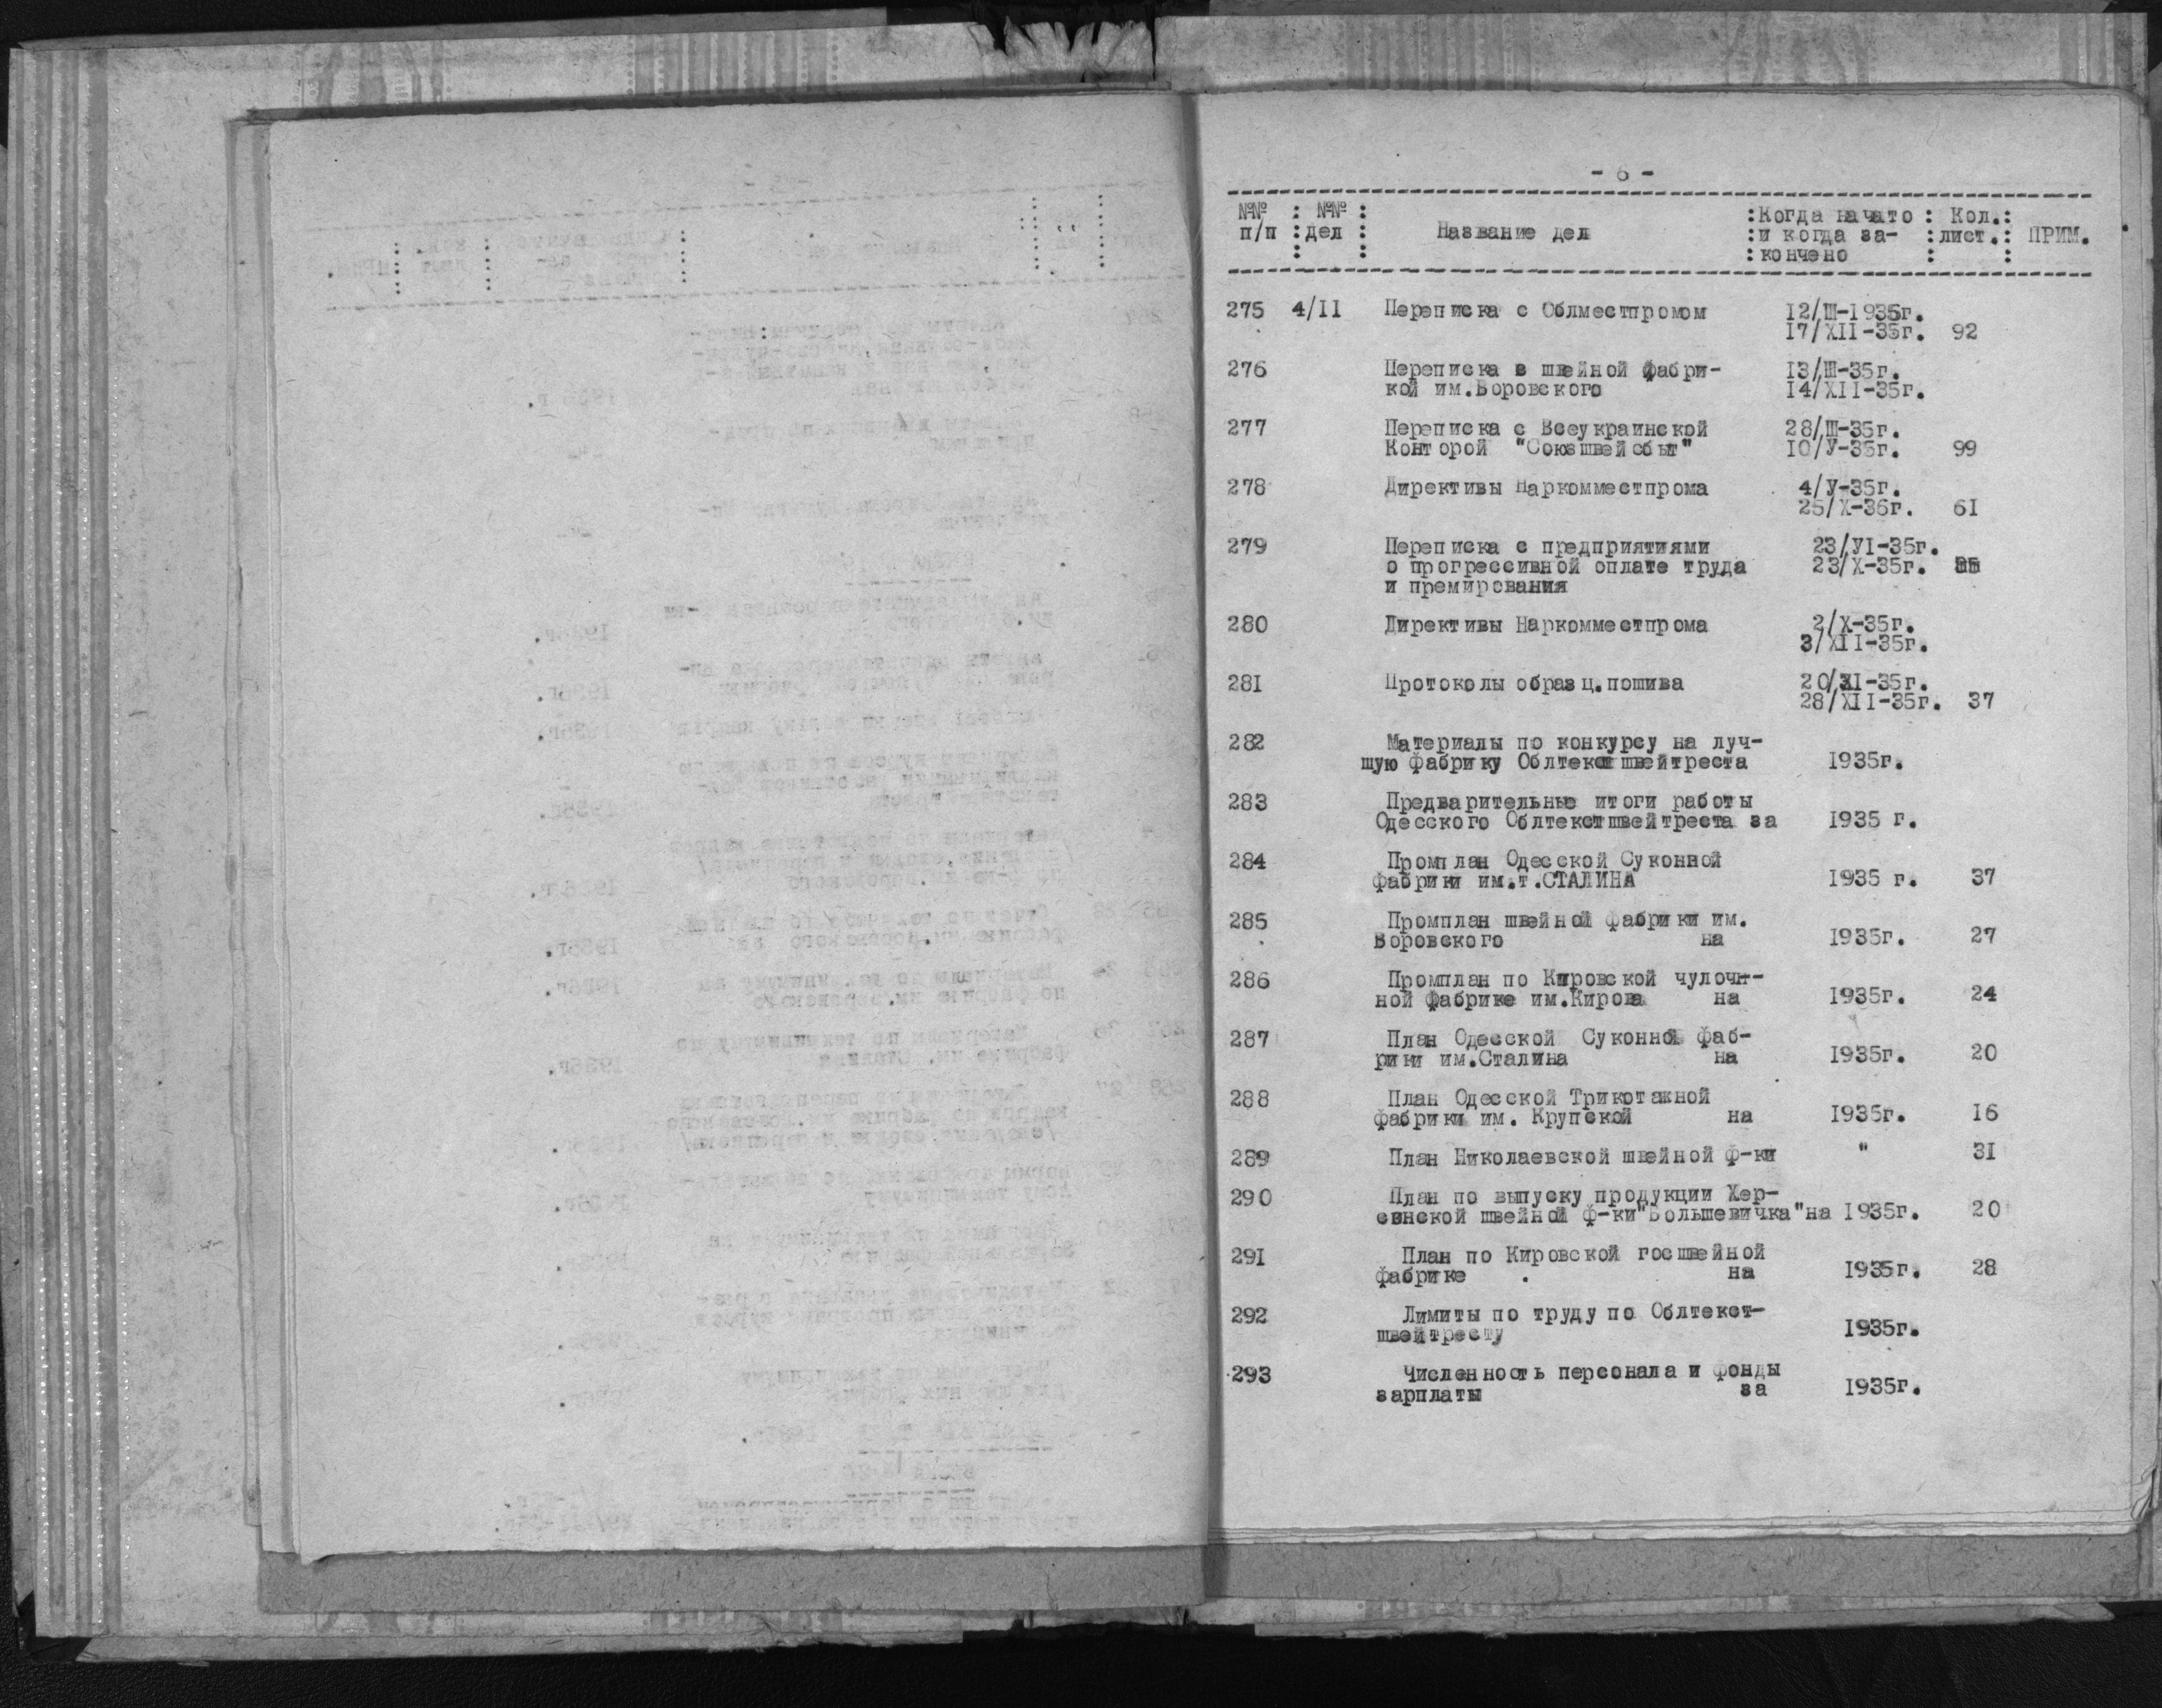 - 6 -
№№ : №№ : :Когда начато : Кол.:
п/п :дел : Название дел :и когда за- :лист.: ПРИМ.
: : :кончено : :
275 4/II Переписка с Облместпромом 12/Ш-1935г.
17/XII-35г. 92
276 Переписка в швейной фабри- 13/Ш-35г.
кой им.Воровского 14/XII-35г.
277 Переписка с Всеукраинской 28/Ш-35г.
Конторой "Союзшвейсбыт" 10/У-35г. 99
278 Директивы Наркомместпрома 4/У-35г.
25/X-36г. 61
279 Переписка с предприятиями 23/УI-35г.
о прогрессивной оплате труда 23/X-35г.
и премирования
280 Директивы Наркомместпрома 2/X-35г.
3/XII-35г.
281 Протоколы образц.пошива 20/XI-35г.
28/XII-35г. 37
282 Материалы по конкурсу на луч-
шую фабрику Облтекстшвейтреста 1935г.
283 Предварительные итоги работы
Одесского Облтекстшвейтреста за 1935 г.
284 Промплан Одесской Суконной
фабрики им.т.СТАЛИНА 1935 г. 37
285 Промплан швейной фабрики им.
Воровского на 1935г. 27
286 Промплан по Кировской чулочн-
ной фабрике им.Кирова на 1935г. 24
287 План Одесской Суконной фаб-
рики им.Сталина на 1935г. 20
288 План Одесской Трикотажной
фабрики им. Крупской на 1935г. 16
289 План Николаевской швейной ф-ки " 31
290 План по выпуску продукции Хер-
сонской швейной ф-ки"Большевичка"на 1935г. 20
291 План по Кировской госшвейной
фабрике . на 1935г. 28
292 Лимиты по труду по Облтекст-
швейтресту 1935г.
293 Численность персонала и фонды
зарплаты за 1935г.